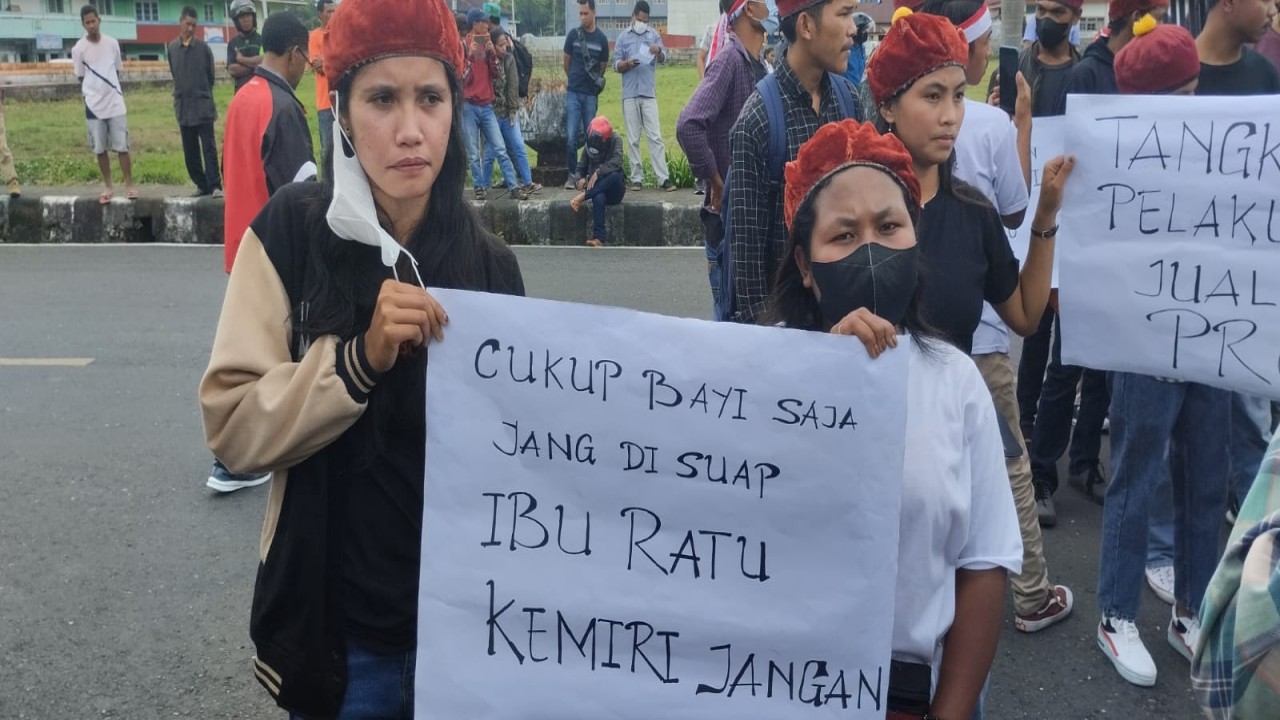 CUKUP BAYI SAJA
JANG DI SUAP
IBU RATU
KEMIRI JANGAN
TANGK
PELAKU
JUAL
PR